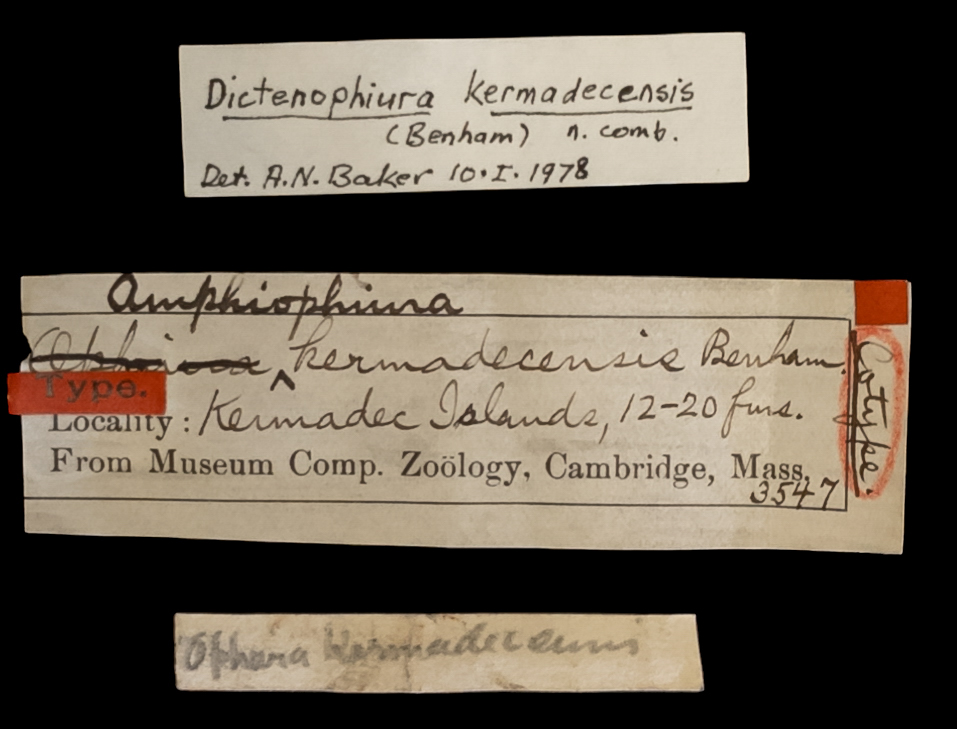 Dictenophiura kermadecensis
(Benham) n. comb.
Det. A.N. Baker 10.I.1978
Amphiophiura
Ophiura ^ kermadecensis Benham.
Type.
Locality: Kermadec Islands, 12-20 fms.
From Museum Comp. Zoölogy, Cambridge, Mass.
3547
Cotype.
Kermadec